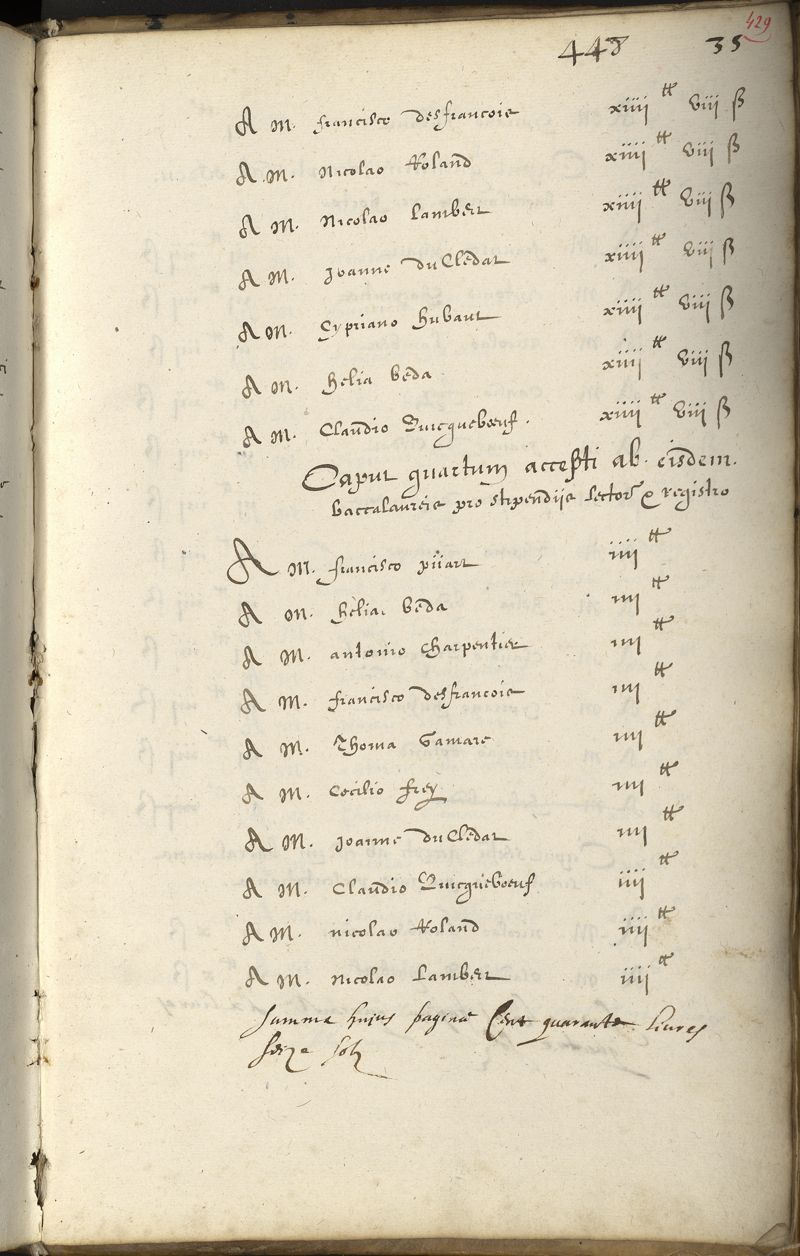 429
448 35
A M. Francisco desfrancois xiiii ₶ viii ß
A M. Nicolao Roland xiiii ₶ viii ß
A M. Nicolao Lambert xiiii ₶ viii ß
A M. Joanne du Cledat xiiii ₶ viii ß
A M. Cypriano Hubaut xiiii ₶ viii ß
A M. Helia beda xiiii ₶ viii ß
A M. Claudio Quicquebœuf. xiiii ₶ viii ß
Caput quartum accepti ab eisdem.
baccalaureis pro stipendijs Lector & registro
A M. Francisco piiart iiii ₶
A M. Helia beda iiii ₶
A M. antonio Charpentier iiii ₶
A M. Francisco desfrancois iiii ₶
A M. Thoma Gamare iiii ₶
A M. Cecilio frey iiii ₶
A M. Joanne du Cledat iiii ₶
A M. Claudio Quicquebœuf iiii ₶
A M. Nicolao Roland iiii ₶
A M. Nicolao Lambert iiii ₶
Summa hujus paginæ Cent quarante livres
seize solz